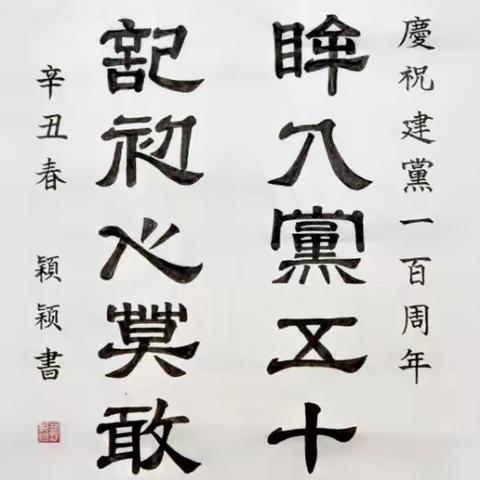 慶祝建黨一百周年
眸入黨五十
記初心莫敢
辛丑春 穎穎書